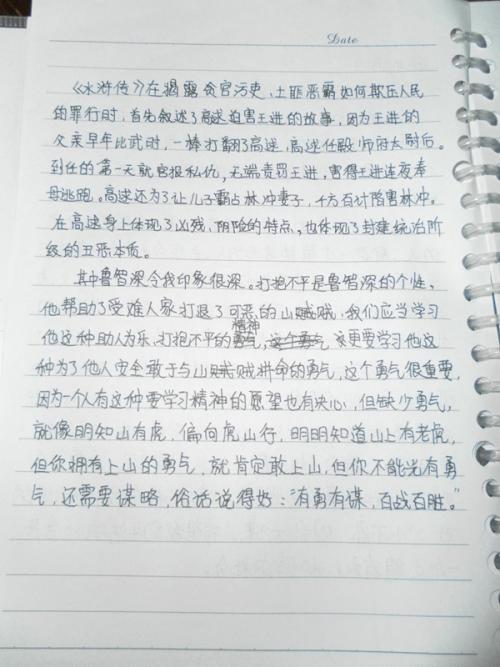 Date
《水浒传》在揭露贪官污吏、土匪恶霸如何欺压人民
的罪行时，首先叙述了高逑迫害王进的故事，因为王进的
父亲早年比武时，一棒打翻了高逑，高逑任殿师府太尉后。
到任的第一天就官报私仇，无端责罚王进，害得王进连夜奉
母逃跑。高逑还为了让儿子霸占林冲妻子，千方百计陷害林冲。
在高逑身上体现了凶残、阴险的特点，也体现了封建统治阶
级的丑恶本质。
其中鲁智深令我印象很深。打抱不平是鲁智深的个性，
他帮助了受难人家打退了可恶的山贼贼，我们应当学习
他这种助人为乐，打抱不平的勇气精神，这个勇气 该更要学习他这
种为了他人安全敢于与山贼贼拼命的勇气，这个勇气很重要，
因为一个人有这种要学习精神的愿望也有决心，但缺少勇气，
就像明知山有虎，偏向虎山行，明明知道山上有老虎，
但你拥有上山的勇气，就肯定敢上山，但你不能光有勇
气，还需要谋略，俗话说得好：“有勇有谋，百战百胜。”